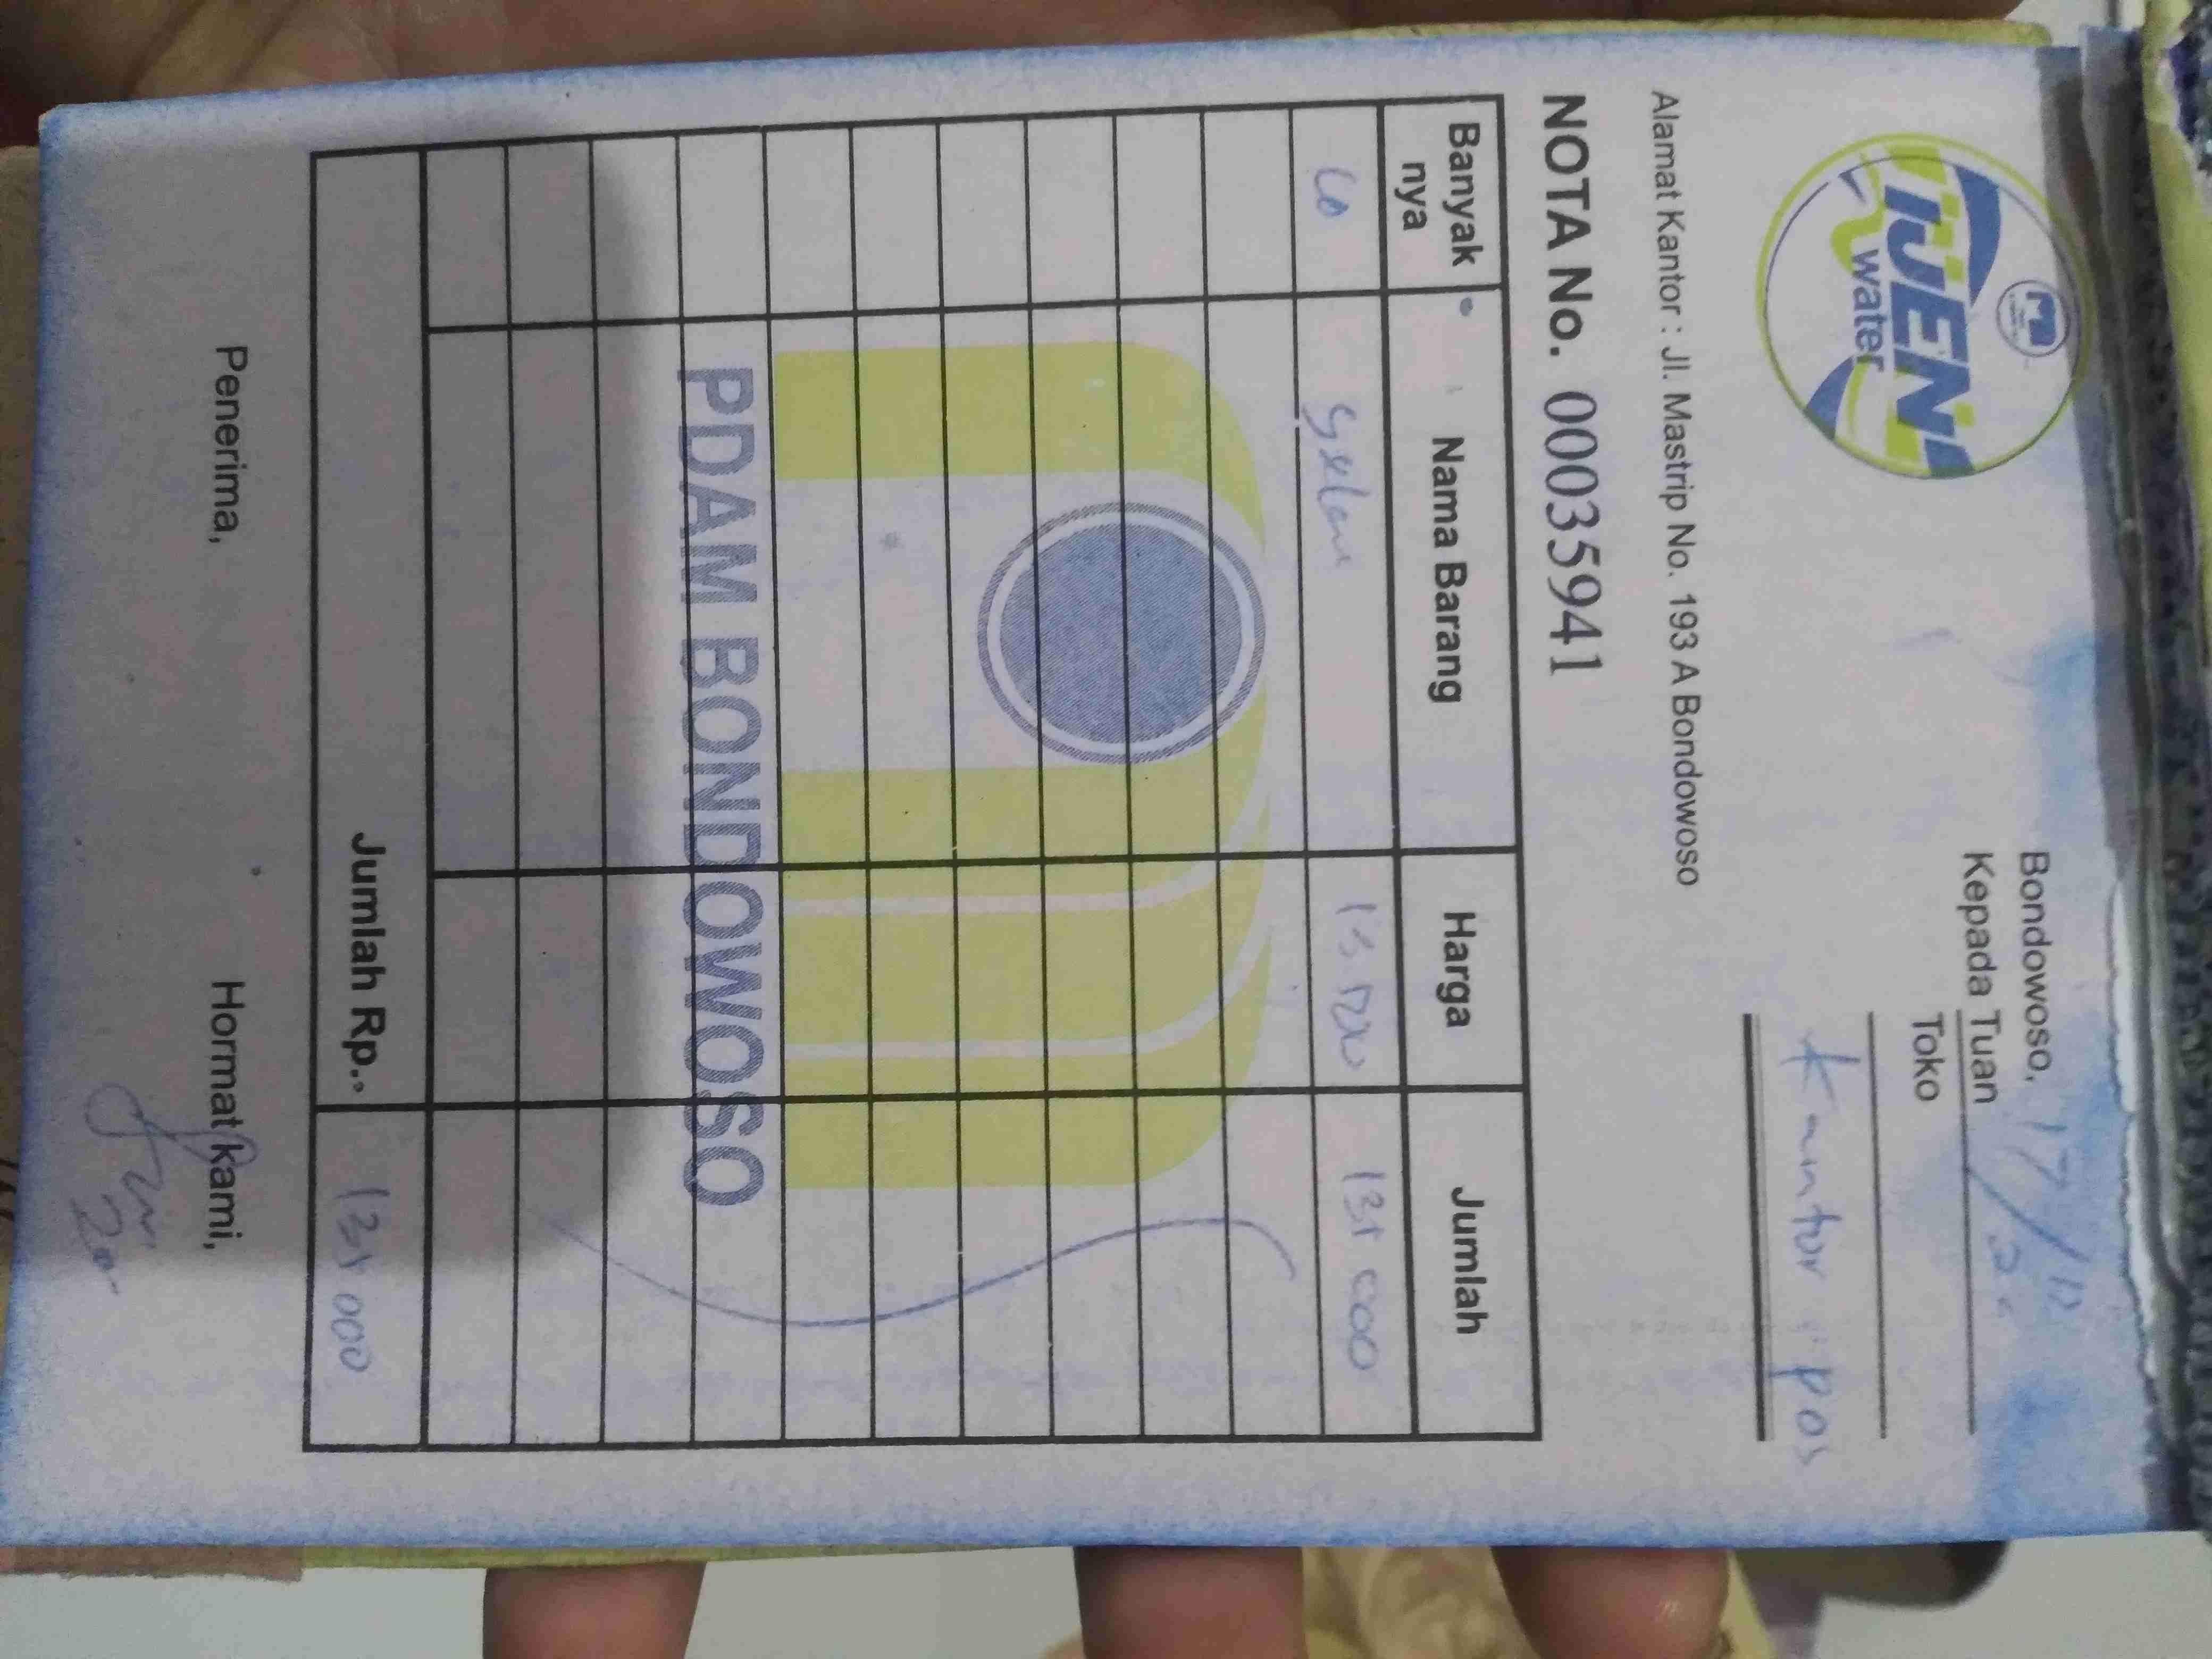 IJEN
water
Bondowoso, 17/10
Kepada Tuan
Toko
Kantor pos
Alamat Kantor : Jl. Mastrip No. 193 A Bondowoso
NOTA No. 00035941
Banyak nya Nama Barang Harga Jumlah
10 13.500 135 000
PDAM BONDOWOSO
Jumlah Rp.. 135 000
Penerima, Hormat kami,